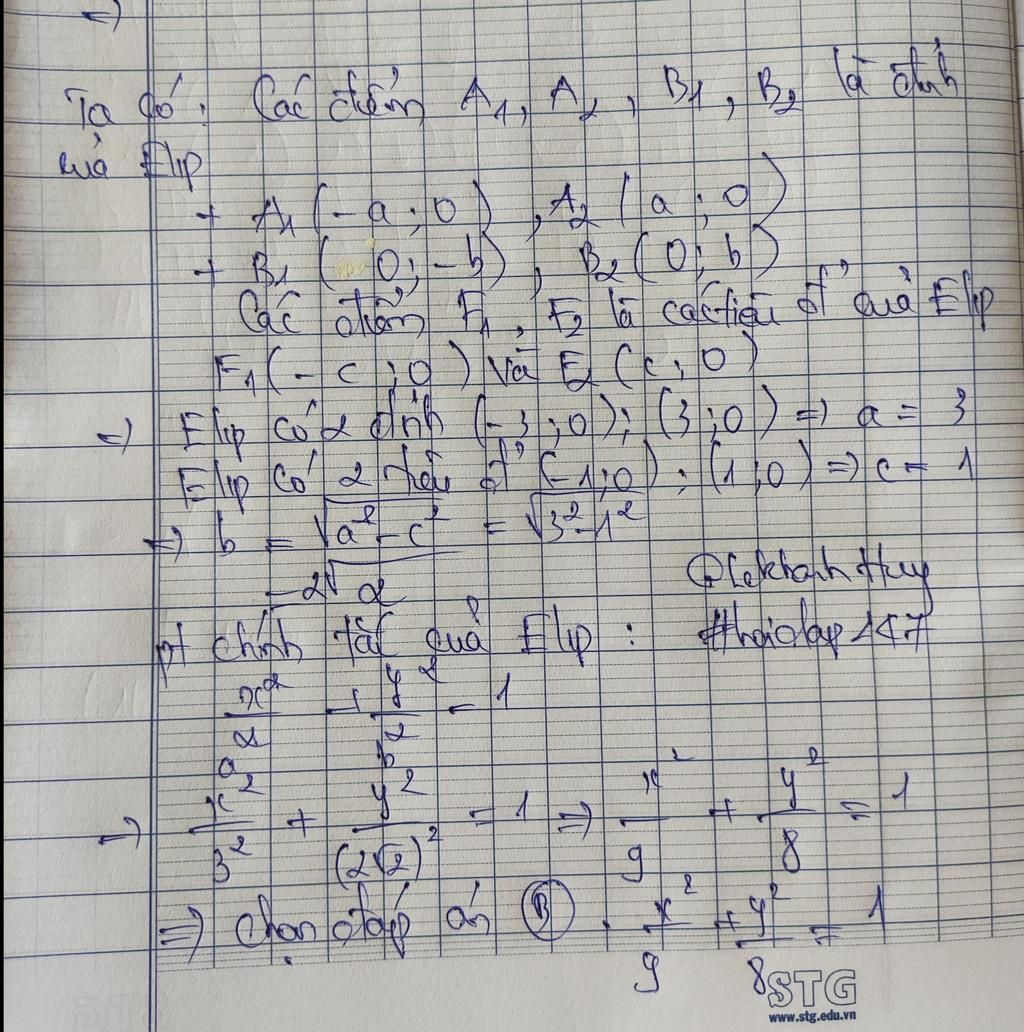 ⇒
Ta có: Các điểm A₁, A₂, B₁, B₂ là đỉnh
của Elip
+ A₁(-a; 0), A₂(a; 0)
+ B₁(0; -b), B₂(0; b)
Các điểm F₁, F₂ là các tiêu cự của Elip
F₁(-c; 0) và F₂(c; 0)
⇒ Elip có 2 đỉnh (-3; 0); (3; 0) ⇒ a = 3
Elip có 2 tiêu cự (-1; 0); (1; 0) ⇒ c = 1
⇒ b = √(a² - c²) = √(3² - 1²)
= 2√2
@LekhanhHuy
pt chính tắc của Elip: #hoidap247
x²/a² + y²/b² = 1
⇒ x²/3² + y²/(2√2)² = 1 ⇒ x²/9 + y²/8 = 1
⇒ chọn đáp án Ⓑ. x²/9 + y²/8 = 1
STG
www.stg.edu.vn